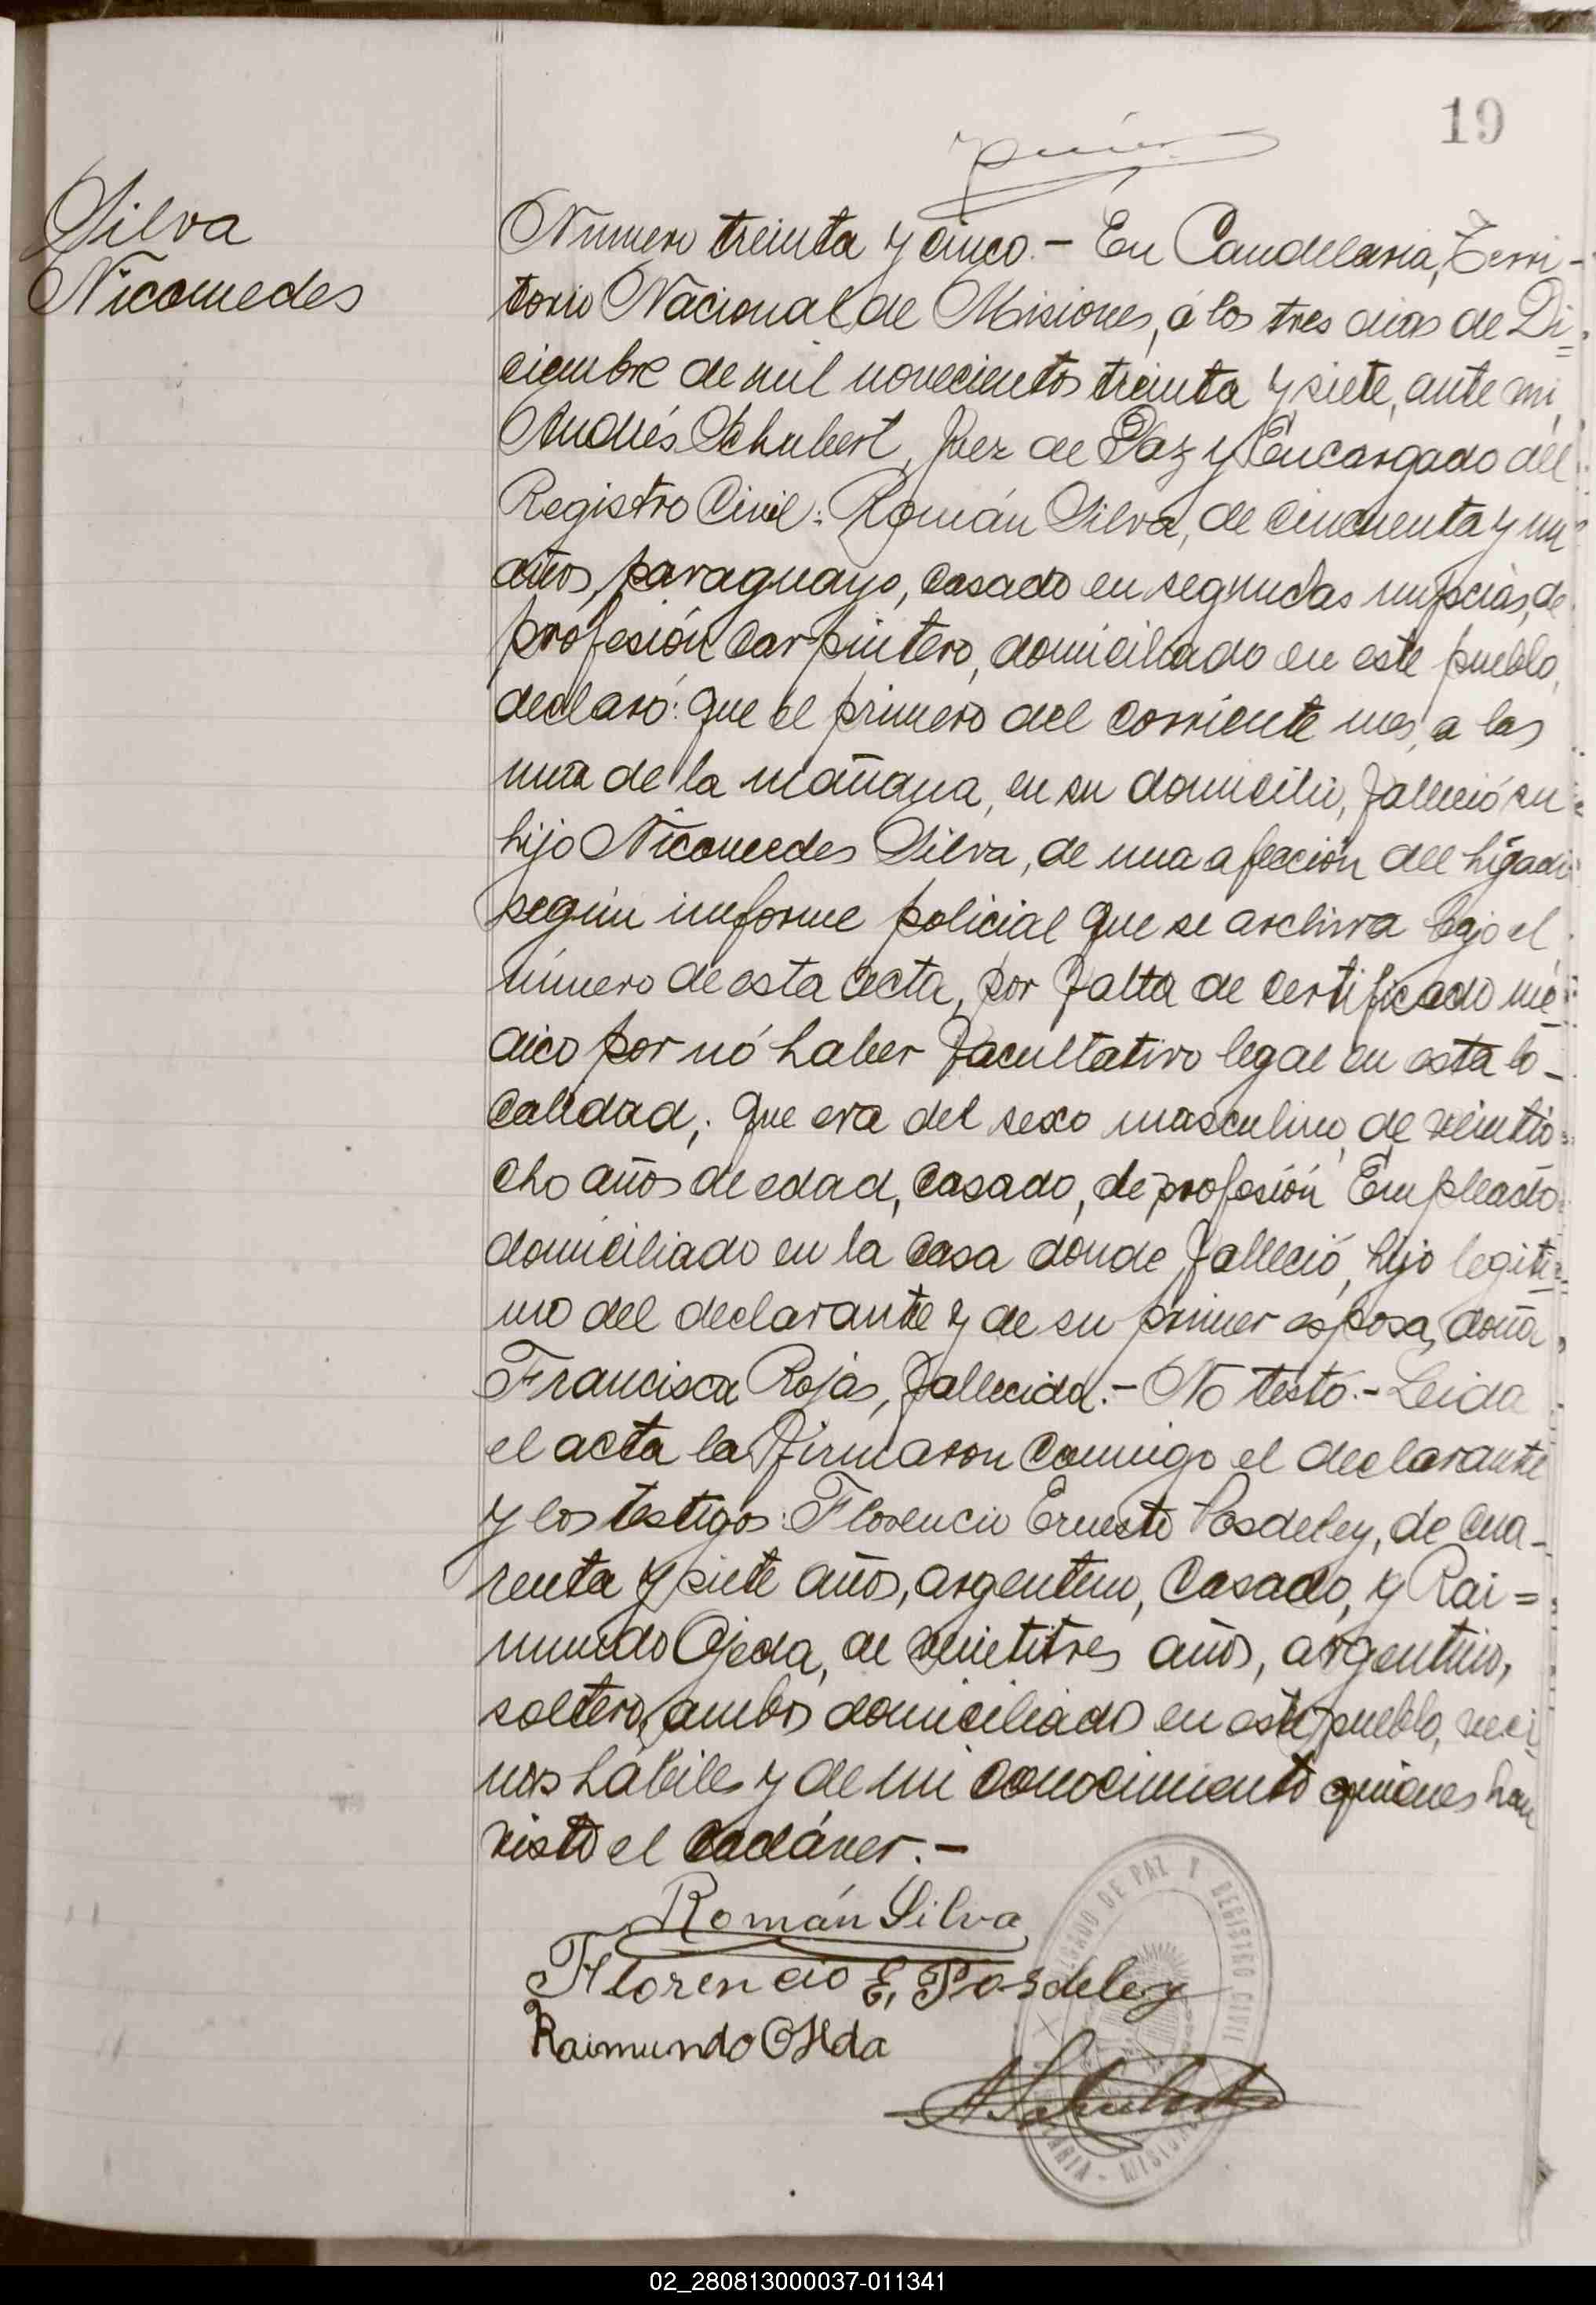 19
Silva
Nicomedes
Número treinta y cinco.- En Candelaria, Terri-
torio Nacional de Misiones, á los tres dias de Di=
ciembre de mil novecientos treinta y siete, ante mi,
Andrés Schubert, Juez de Paz y Encargado del
Registro Civil: Román Silva, de cincuenta y un
años, paraguayo, casado en segundas nupcias, de
profesión carpintero, domiciliado en este pueblo,
declaró: que el primero del corriente mes, a las
una de la mañana, en su domicilio, falleció su
hijo Nicomedes Silva, de una afección del hígado
según informe policial que se archiva bajo el
número de esta acta, por falta de certificado mé-
dico por nó haber facultativo legal en esta lo-
calidad; que era del sexo masculino, de veintio-
cho años de edad, casado, de profesión Empleado
domiciliado en la casa donde falleció, hijo legiti-
mo del declarante y de su primer esposa, doña
Francisca Rojas, fallecida.- No testó.- Leida
el acta la firmaron conmigo el declarante
y los testigos: Florencio Ernesto Posdeley, de cua-
renta y siete años, argentino, casado, y Rai=
mundo Ojeda, de veintitres años, argentino,
soltero, ambos domiciliados en este pueblo, veci-
nos hábiles y de mi conocimiento quienes han
visto el cadáver.-
Román Silva
Florencio E. Posdeley
Raimundo Ojeda
A Schubert
JUZGADO DE PAZ Y REGISTRO CIVIL
CANDELARIA - MISIONES
02_280813000037-011341